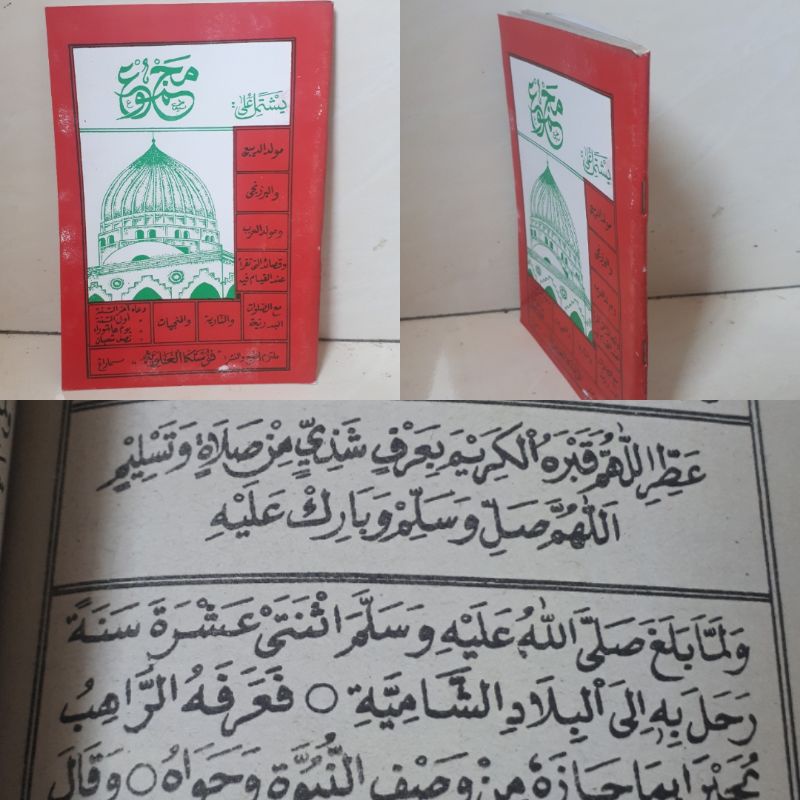 مَجْمُوع
يَشْتَمِلُ عَلَى:
مولد الديبع
والبرزنجى
ومولد العرب
وقصائد التى تقرأ
عند القيام فيه
مع الصلوات
البدرية
والناريــة
والمنجيات
دعاء آخر السنة
" أول السنة
" يوم عاشوراء
" نصف شعبان
مَجْمُوع
يَشْتَمِلُ عَلَى:
عَطِّرِ اللّٰهُمَّ قَبْرَهُ الْكَرِيْمَ بِعَرْفٍ شَذِيٍّ مِنْ صَلَاةٍ وَتَسْلِيْمٍ
اَللّٰهُمَّ صَلِّ وَسَلِّمْ وَبَارِكْ عَلَيْهِ
وَلَمَّا بَلَغَ صَلَّى اللّٰهُ عَلَيْهِ وَسَلَّمَ اثْنَتَىْ عَشْرَةَ سَنَةً
رَحَلَ بِهِ إِلَى الْبِلَادِ الشَّامِيَّةِ ○ فَعَرَفَهُ الرَّاهِبُ
بُحَيْرَا بِمَا حَازَهُ مِنْ وَصْفِ النُّبُوَّةِ وَحَوَاهُ ○ وَقَالَ